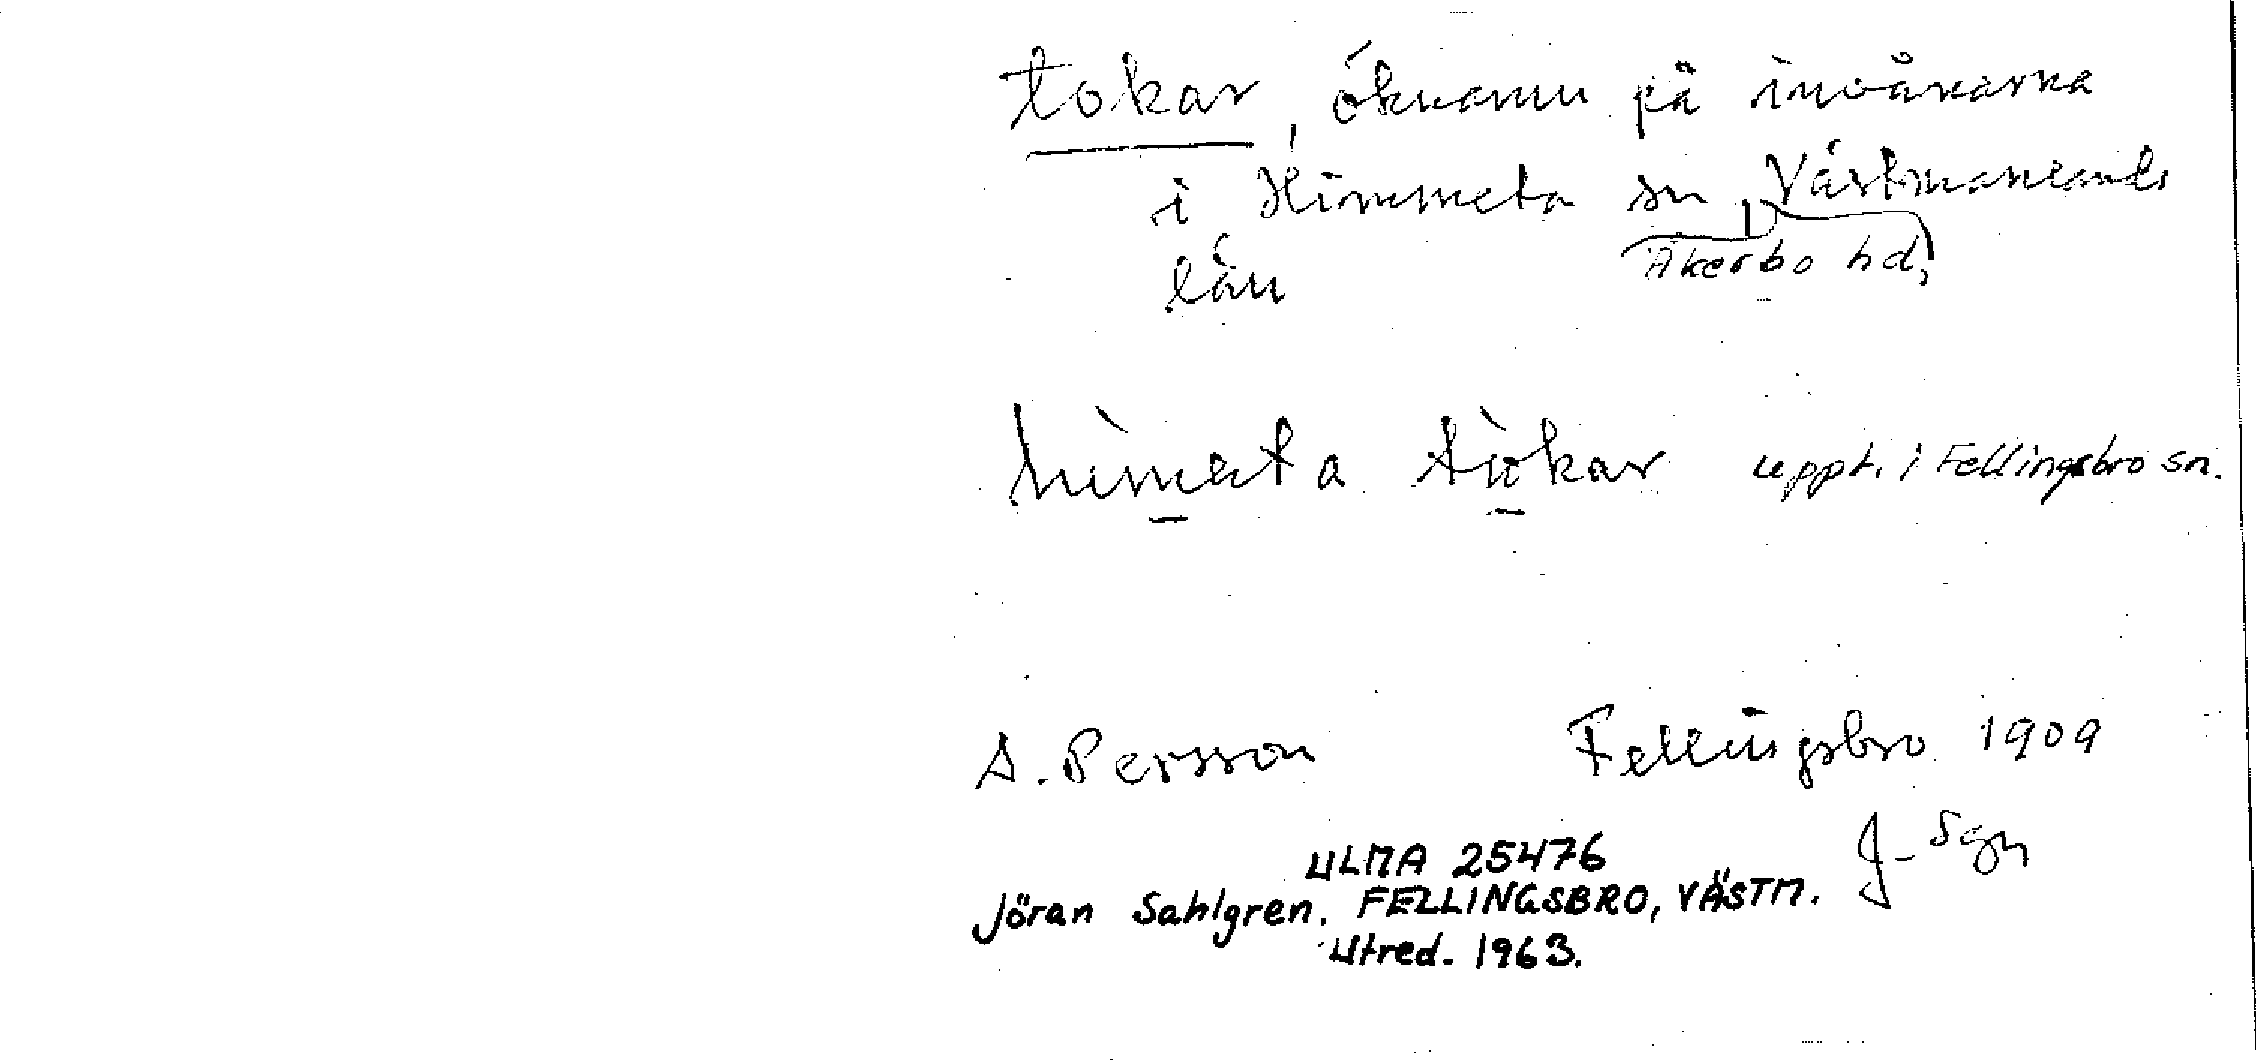 tokar, öknamn på invånarna
i Himmeta sn, Västmanlands
Åkerbo hd,
län
himeta tokar uppt. i Fellingsbro sn.
A. Persson Fellingsbro 1909
J. Sgn
ULMA 25476
Jöran Sahlgren. FELLINGSBRO, VÄSTM.
Utred. 1963.